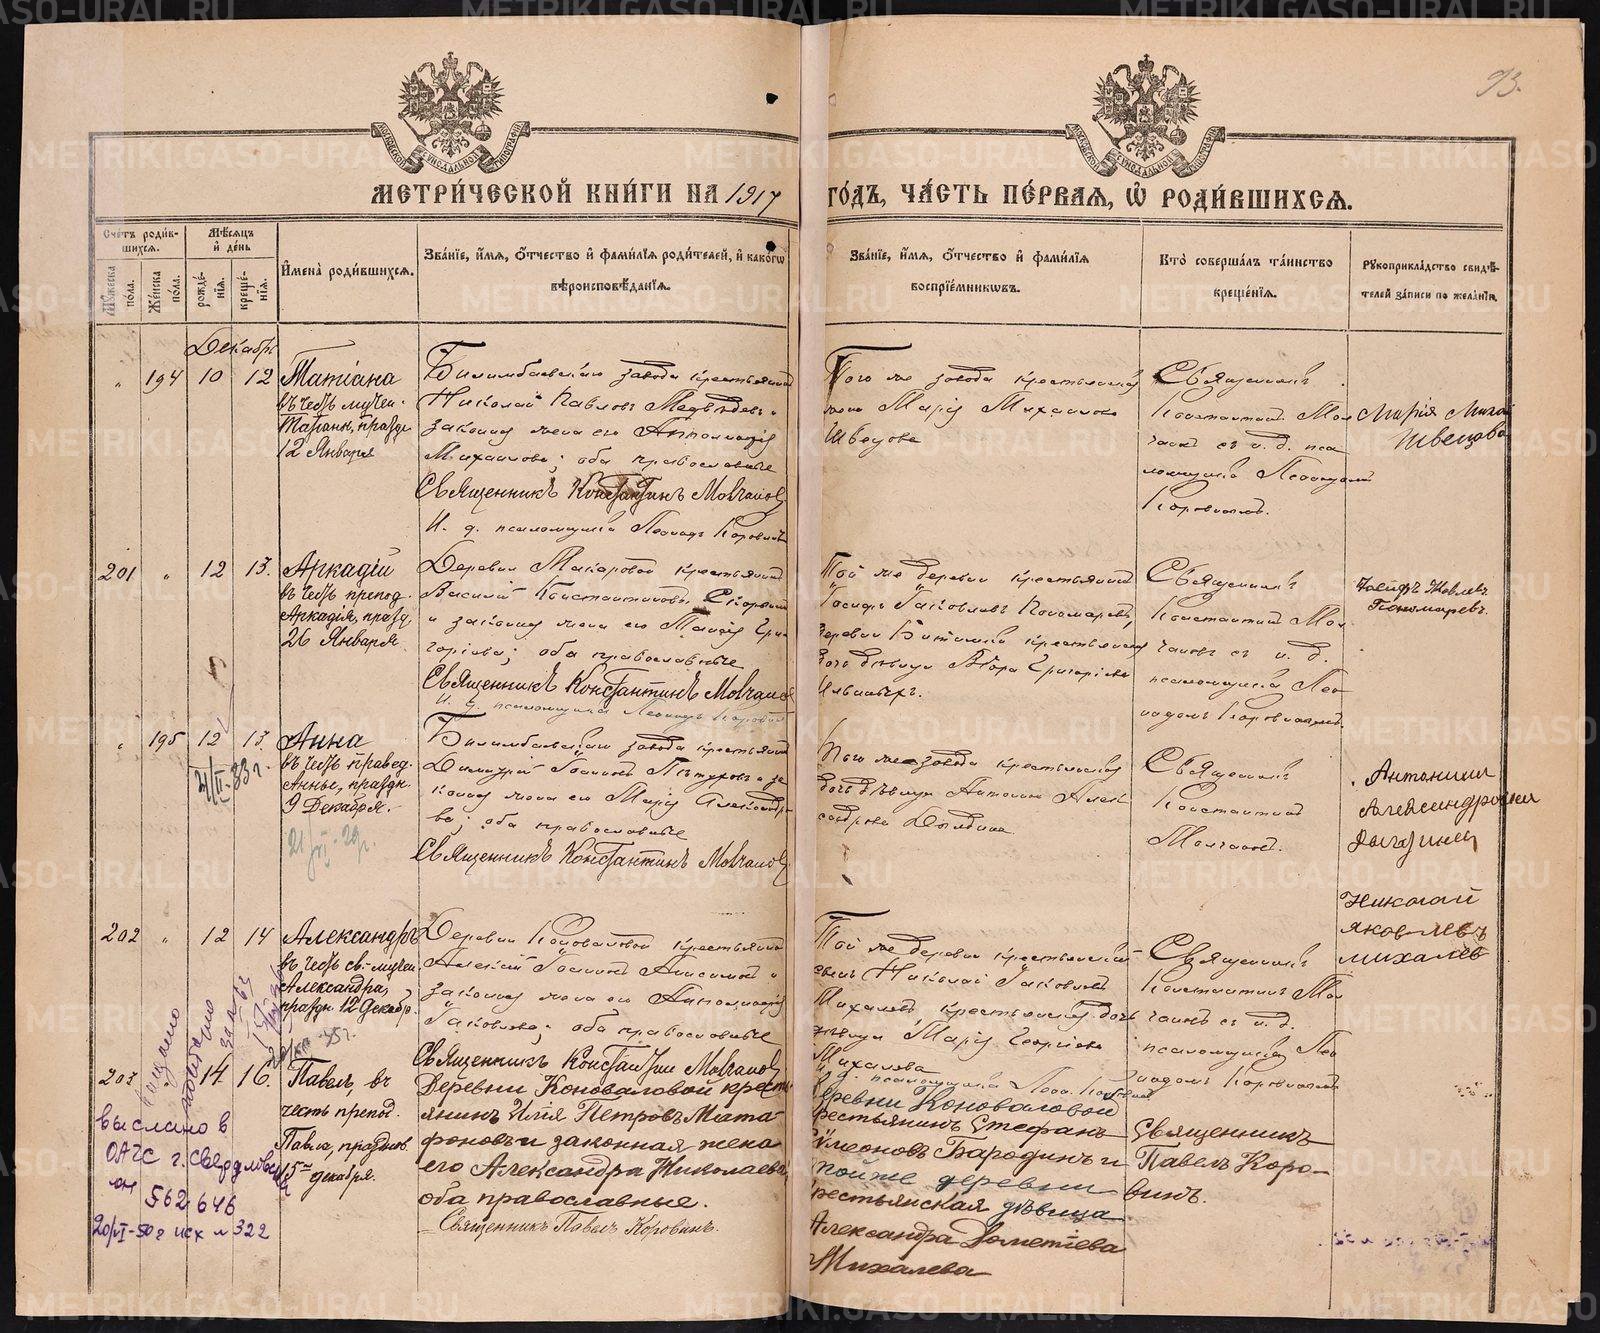 93.
МЕТРИ́ЧЕСКОЙ КНИ́ГИ НА 1917 ГО́ДЪ, ЧА́СТЬ ПЕ́РВАЯ, Ѡ҆ РОДИ́ВШИХСЯ.
Сче́тъ роди́вшихся.
Мꙋ́жеска по́ла.
Же́нска по́ла.
Мѣ́сяцъ и҆ де́нь
рожде́нїя.
креще́нїя.
И҆мена̀ роди́вшихся.
Зва́нїе, и҆́мя, ѻ҆́тчество и҆ фами́лїя роди́телей, и҆ како́гѡ вѣроисповѣ́данїя.
Зва́нїе, и҆́мя, ѻ҆́тчество и҆ фами́лїя воспрїе́мникѡвъ.
Кто̀ соверша́лъ та́инство креще́нїя.
Рꙋкоприкла́дство свидѣ́телей за́писи по жела́нїю.
Декабрь
" 194 10 12
Татіана
въ честь мучен.
Татіан., праздн.
12 Января
Билимбаевскаго завода крестьянинъ
Николай Павловъ Медвѣдевъ и
законная жена его Аполлинарія
Михаилова; оба православные
Священникъ Константинъ Молчановъ
И. д. псаломщика Леонидъ Коровинъ
Того же завода крестьянская
жена Марія Михаилова
Швецова
Священникъ
Константинъ Мол
чановъ съ и. д. пса
ломщика Леонидомъ
Коровинымъ.
Марія Миха
Швецова
201 " 12 13.
Аркадій
въ честь препод.
Аркадія, празд.
26 Января
Деревни Макаровой крестьянинъ
Василій Константиновъ
и законная жена его
горіева; оба православные
Священникъ Константинъ Молчановъ
И. д. псаломщика Леонидъ Коровинъ
Той же деревни крестьянинъ
Іосифъ Іаковлевъ Пономаревъ,
деревни Битимки крестьянская
дочь дѣвица Вѣра Григоріева
Ильиныхъ.
Священникъ
Константинъ Мол
чановъ съ и. д.
псаломщика Лео
нидомъ Коровинымъ.
Іосифъ Яковлевъ
Пономаревъ
" 195 12 13.
Анна
въ честь правед.
Анны, праздн.
9 Декабря.
21/II-33 г.
Билимбаевскаго завода крестьянинъ
Димитрій Іоанновъ Пѣтуховъ и за
конная жена его Марія Александро
ва; оба православные
Священникъ Константинъ Молчановъ
Того же завода крестьянская
дочь дѣвица Антонина Алек
сандрова Дылдина
Священникъ
Константинъ
Молчановъ.
Антонина
Александровна
Дылдина
202 " 12 14
Александръ
въ честь св.-мучен.
Александра,
праздн. 12 Декабр.
Деревни Коноваловой крестьянинъ
Алексій Іоанновъ Анисимовъ и
законная жена его Аполлинарія
Іаковлева; оба православные
Священникъ Константинъ Молчановъ
Той же деревни крестьянскій
сынъ Николай Іаковлевъ
Михалевъ, крестьянская дочь
дѣвица Марія Георгіева
Михалева
И. д. псаломщика Леон. Коровинъ
Священникъ
Константинъ Мол
чановъ съ и. д.
псаломщика Лео
нидомъ Коровинымъ
Николай
Яковлевъ
Михалев
203 14 16.
Павелъ, въ
честь препод.
Павла, празднов.
15го декабря.
Деревни Коноваловой кресть
янинъ Илія Петровъ Мата
фоновъ и законная жена
его Александра Николаева,
оба православные.
Священникъ Павелъ Коровинъ.
Деревни Коноваловой
крестьянинъ Стефанъ
Сѵмеоновъ Бародинъ и
тойже деревни
крестьянская дѣвица
Александра Дометіева
Михалева
Священникъ
Павелъ Коро-
винъ.
выслано в
ОАГС г. Свердловска
562646
20/VI-50 г исх № 322